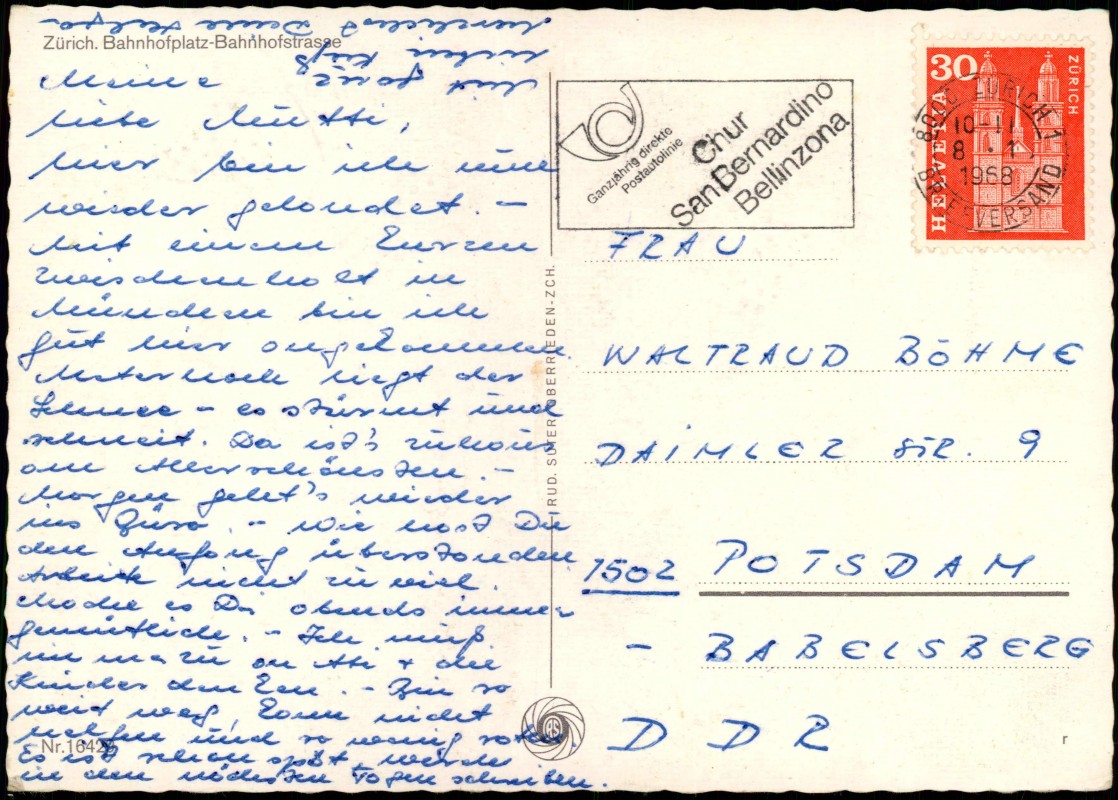 Zürich. Bahnhofplatz-Bahnhofstrasse
Meine
liebe Mutti,
hier bin ich nun
wieder gelandet. -
Mit einem kurzen
Zwischenhalt in
München bin ich
gut hier angekommen.
Meterhoch liegt der
Schnee - es stürmt und
schneit. Da ist's zuhaus
am Allerschönsten. -
Morgen geht's wieder
ins Büro. - Wie hast Du
den Anfang überstanden
Arbeite nicht zu viel.
Mache es Dir abends immer
gemütlich. - Ich muß
immerzu an + die
Kinder denken. - Bin so
weit weg, kann nicht
helfen und so wenig raten.
Es ist schon spät werde
in den nächsten Tagen schreiben.
und ganz
lieben Kuß
herzlichst Deine Helga
Nr. 1642
RUD. SUTER, OBERRIEDEN-ZCH.
Ganzjährig direkte
Postautolinie
Chur
San Bernardino
Bellinzona
30
HELVETIA
ZÜRICH
8000 ZÜRICH 1
10-11
8.1
1968
BRIEFVERSAND
FRAU
WALTRAUD BÖHME
DAIMLER STR. 9
1502 POTSDAM
- BABELSBERG
DDR
r